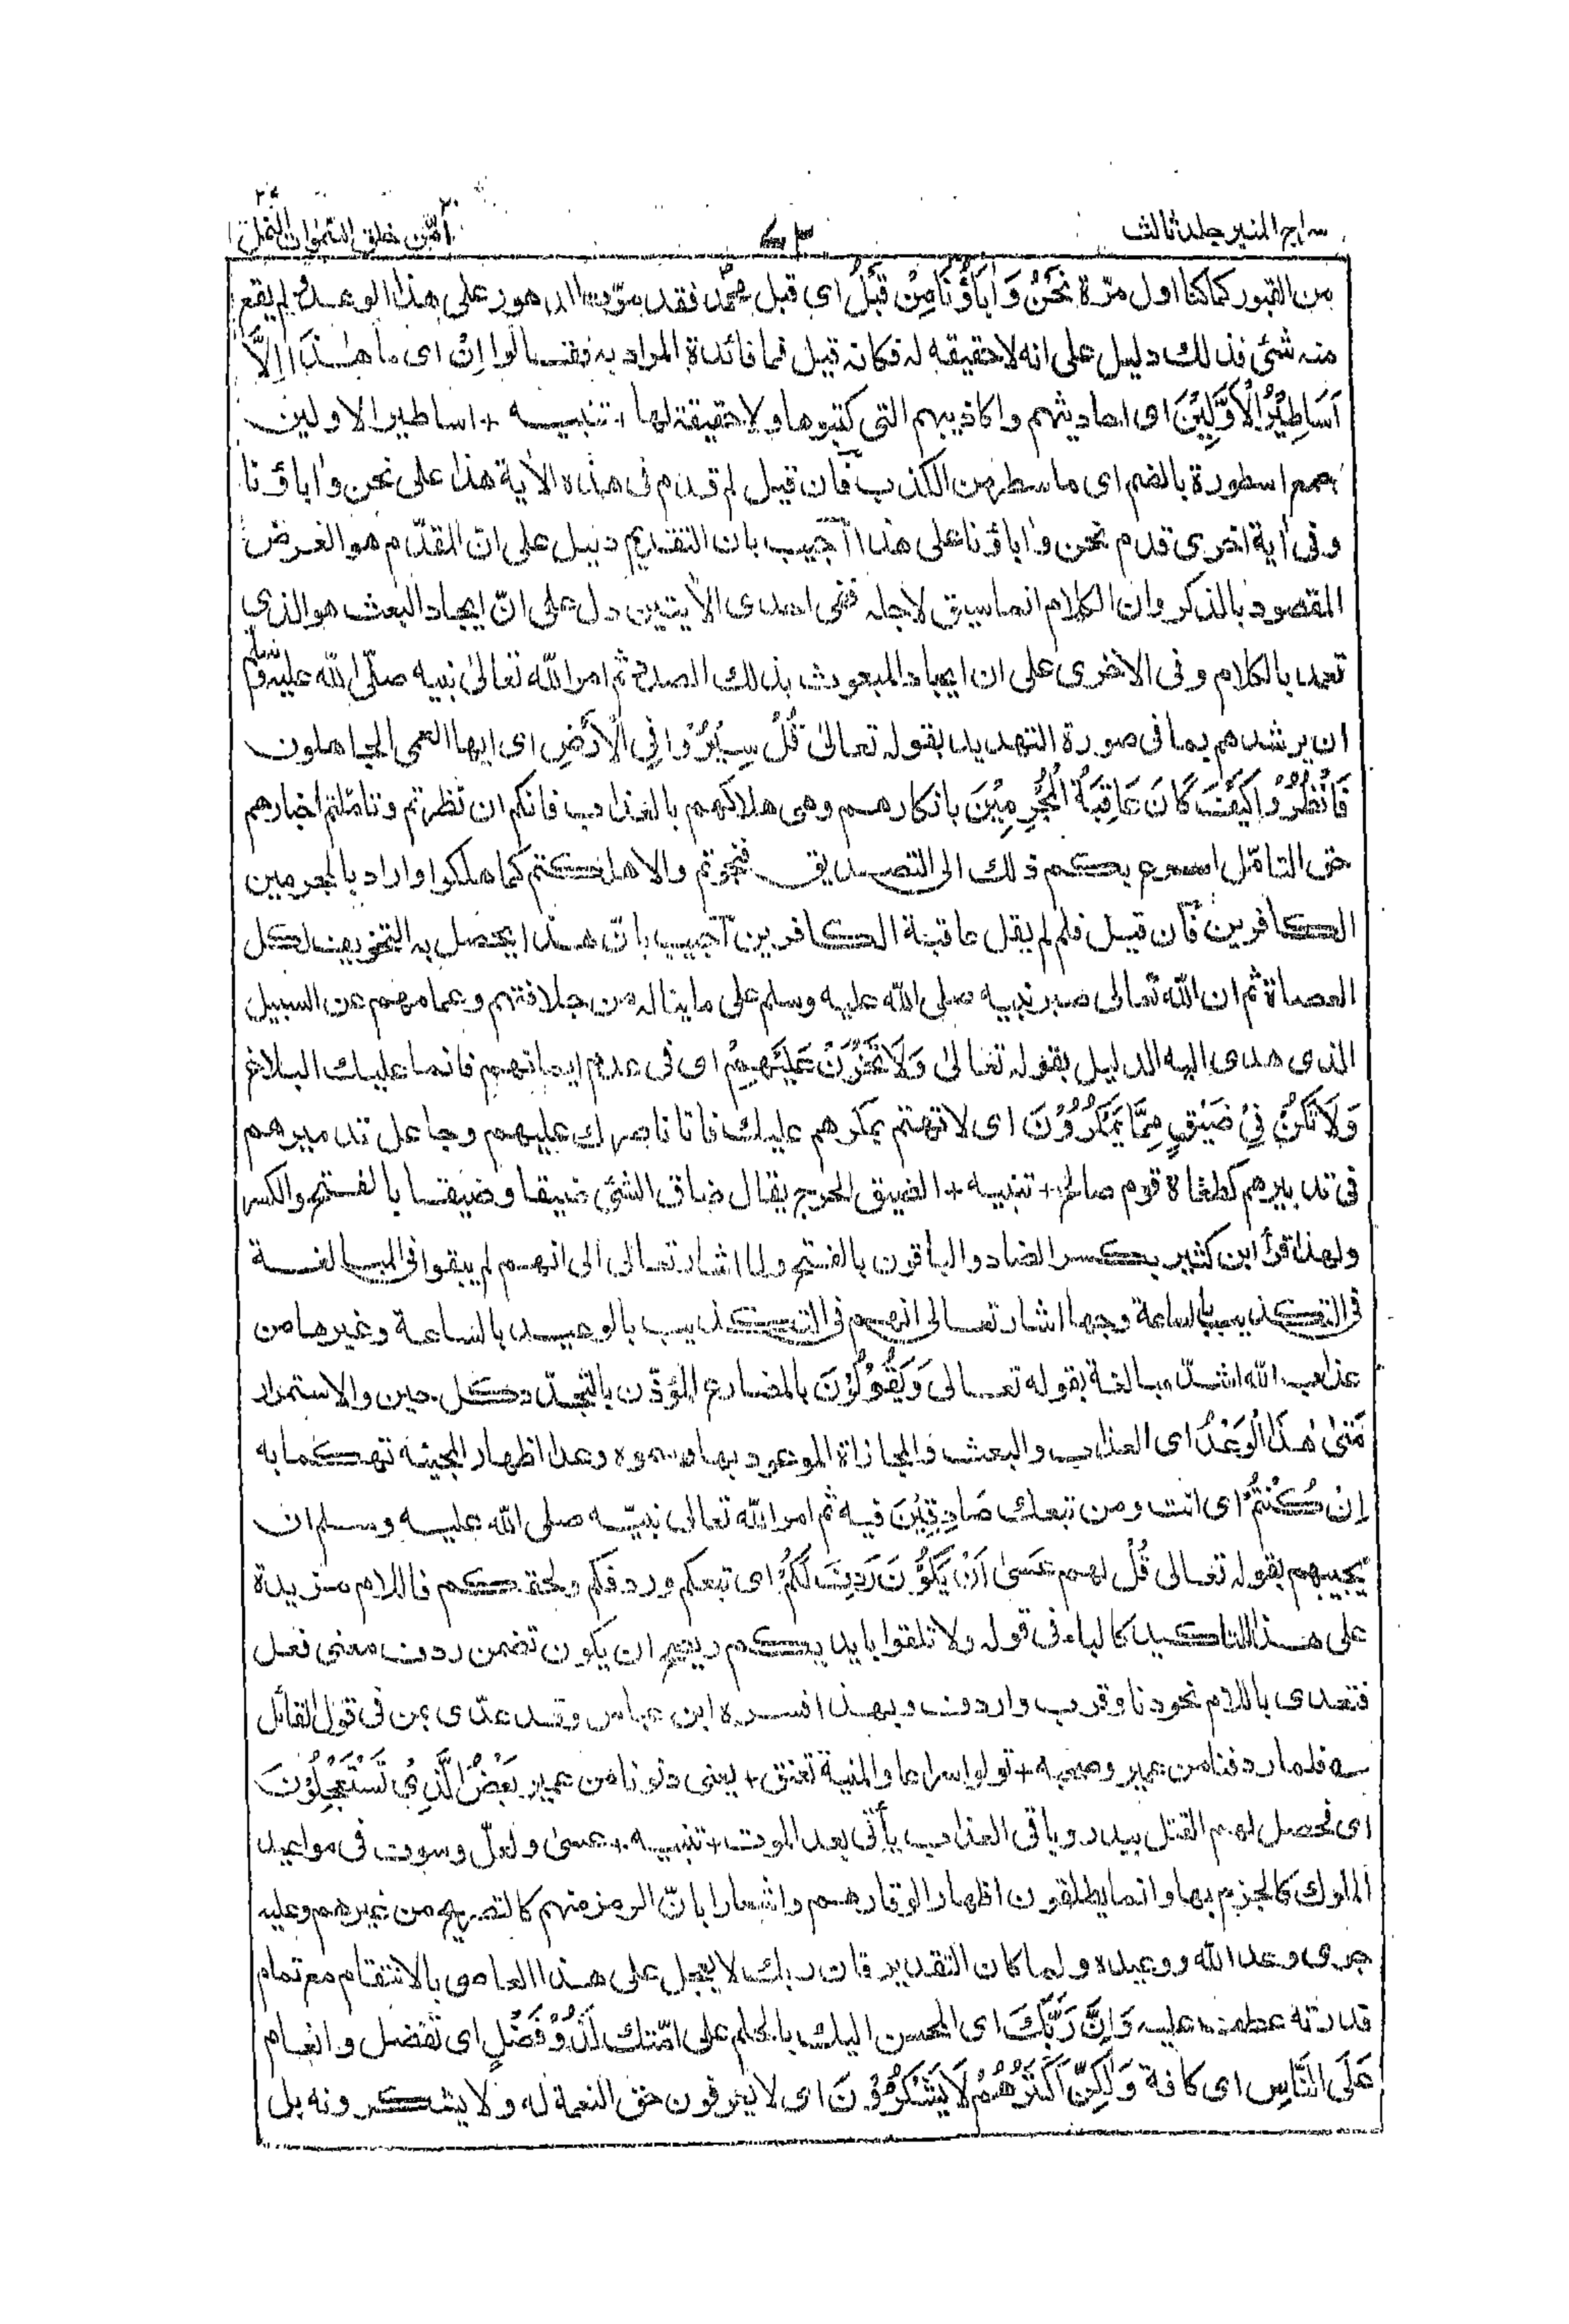 سراج المنير جلد ثالث
امّن خلق السّمٰوات النمل
من القبور كما كنا اول مرّة نَحْنُ وَاٰبَاؤُنَا مِنْ قَبْلُ اى قبل محمّد فقد مرّت الدهور على هذا الوعد ولم يقع
منه شئ فذلك دليل على انه لا حقيقة له فكانه قيل فما فائدة المراد به فقالوا اِنْ اى ما هٰذَا اِلَّا
اَسَاطِيْرُ الْاَوَّلِيْنَ اى احاديثهم واكاذيبهم التى كتبوها ولا حقيقة لها + تنبيه + اساطير الاولين
جمع اسطورة بالضم اى ما سطر من الكذب فان قيل لم قدم فى هذه الاٰية هذا على نحن واٰباؤنا
وفى اٰية اخرى قدم نحن واٰباؤنا على هذا اُجيب بان التقديم دليل على انّ المقدّم هو الغرض
المقصود بالذكر وان الكلام انما سيق لاجله ففى احدى الاٰيتين دل على انّ ايجاد البعث هو الذى
تعمد بالكلام وفى الاخرى على ان ايجاد المبعوث بذلك الصدد ثم امر الله تعالىٰ نبيه صلّى الله عليه وسلم
ان يرشدهم بما فى صورة التهديد بقوله تعالىٰ قُلْ سِيْرُوْا فِي الْاَرْضِ اى ايها العمى الجاهلون
فَانْظُرُوْا كَيْفَ كَانَ عَاقِبَةُ الْمُجْرِمِيْنَ بانكارهم وهى هلاكهم بالعذاب فانكم ان نظرتم وتاملتم اخبارهم
حق التامّل اسرع بكم ذلك الى التصديق فنجوتم والا هلكتم كما هلكوا واراد بالمجرمين
الكافرين فان قيل فلم لم يقل عاقبة الكافرين اُجيب بانّ هذا يحصل به التخويف لكل
العصاة ثم ان الله تعالى صبر نبيه صلى الله عليه وسلم على ما يناله من جلافتهم وعماهم عن السبيل
الذى هدى اليه الدليل بقوله تعالىٰ وَلَا تَحْزَنْ عَلَيْهِمْ اى فى عدم ايمانهم فانما عليك البلاغ
وَلَا تَكُنْ فِيْ ضَيْقٍ مِمَّا يَمْكُرُوْنَ اى لا تهتم بمكرهم عليك فانا ناصرك عليهم وجاعل تدميرهم
فى تدبيرهم كطغاة قوم صالح + تنبيه + الضيق الحرج يقال ضاق الشئ ضيقا وضيقا بالفتح والكسر
ولهذا قرأ ابن كثير بكسر الضاد والباقون بالفتح ولما اشار تعالى الى انهم لم يبقوا فى المبالغة
فى التكذيب بالساعة وجها اشار تعالى انهم فى التكذيب بالوعيد بالساعة وغيرها من
عذاب الله اشدّ مبالغة بقوله تعالى وَيَقُوْلُوْنَ بالمضارع المؤذن بالتجدّد كل حين والاستمرار
مَتٰى هٰذَا الْوَعْدُ اى العذاب والبعث والمجازاة الموعود بها وسموه وعدا اظهار المحبة تهكما به
اِنْ كُنْتُمْ اى انت ومن تبعك صَادِقِيْنَ فيه ثم امر الله تعالى نبيّه صلى الله عليه وسلم ان
يجيبهم بقوله تعالى قُلْ لهم عَسٰى اَنْ يَكُوْنَ رَدِفَ لَكُمْ اى تبعكم وردفكم ولحقكم فاللام مزيدة
على هذا للتاكيد كالباء فى قوله ولا تلقوا بايديكم ويصح ان يكون تضمن ردف معنى فعل
فتعدى باللام نحو دنا وقرب وازدف وبهذا فسره ابن عباس وقد عدّى بمن فى قول القائل
فلما ردفنا من عمير وصحبه + تولوا سراعا والمنية تعنق + يعنى دنونا من عمير بَعْضُ الَّذِيْ تَسْتَعْجِلُوْنَ
اى فحصل لهم القتل ببدر وباقى العذاب يأتى بعد الموت + تنبيه + عسىٰ ولعلّ وسوف فى مواعيد
الملوك كالجزم بها وانما يطلقون اظهارا لوقارهم واشعارا بانّ الرمز منهم كالتصريح من غيرهم وعليه
جرى وعد الله ووعيده ولما كان التقدير فان ربك لا يعجل على هذا العاصى بالانتقام مع تمام
قدرته عليه وَاِنَّ رَبَّكَ اى المحسن اليك بالحلم على امّتك لَذُوْ فَضْلٍ اى تفضل وانعام
عَلَى النَّاسِ اى كافة وَلٰكِنَّ اَكْثَرَهُمْ لَا يَشْكُرُوْنَ اى لا يعرفون حق النعمة له ولا يشكرونه بل